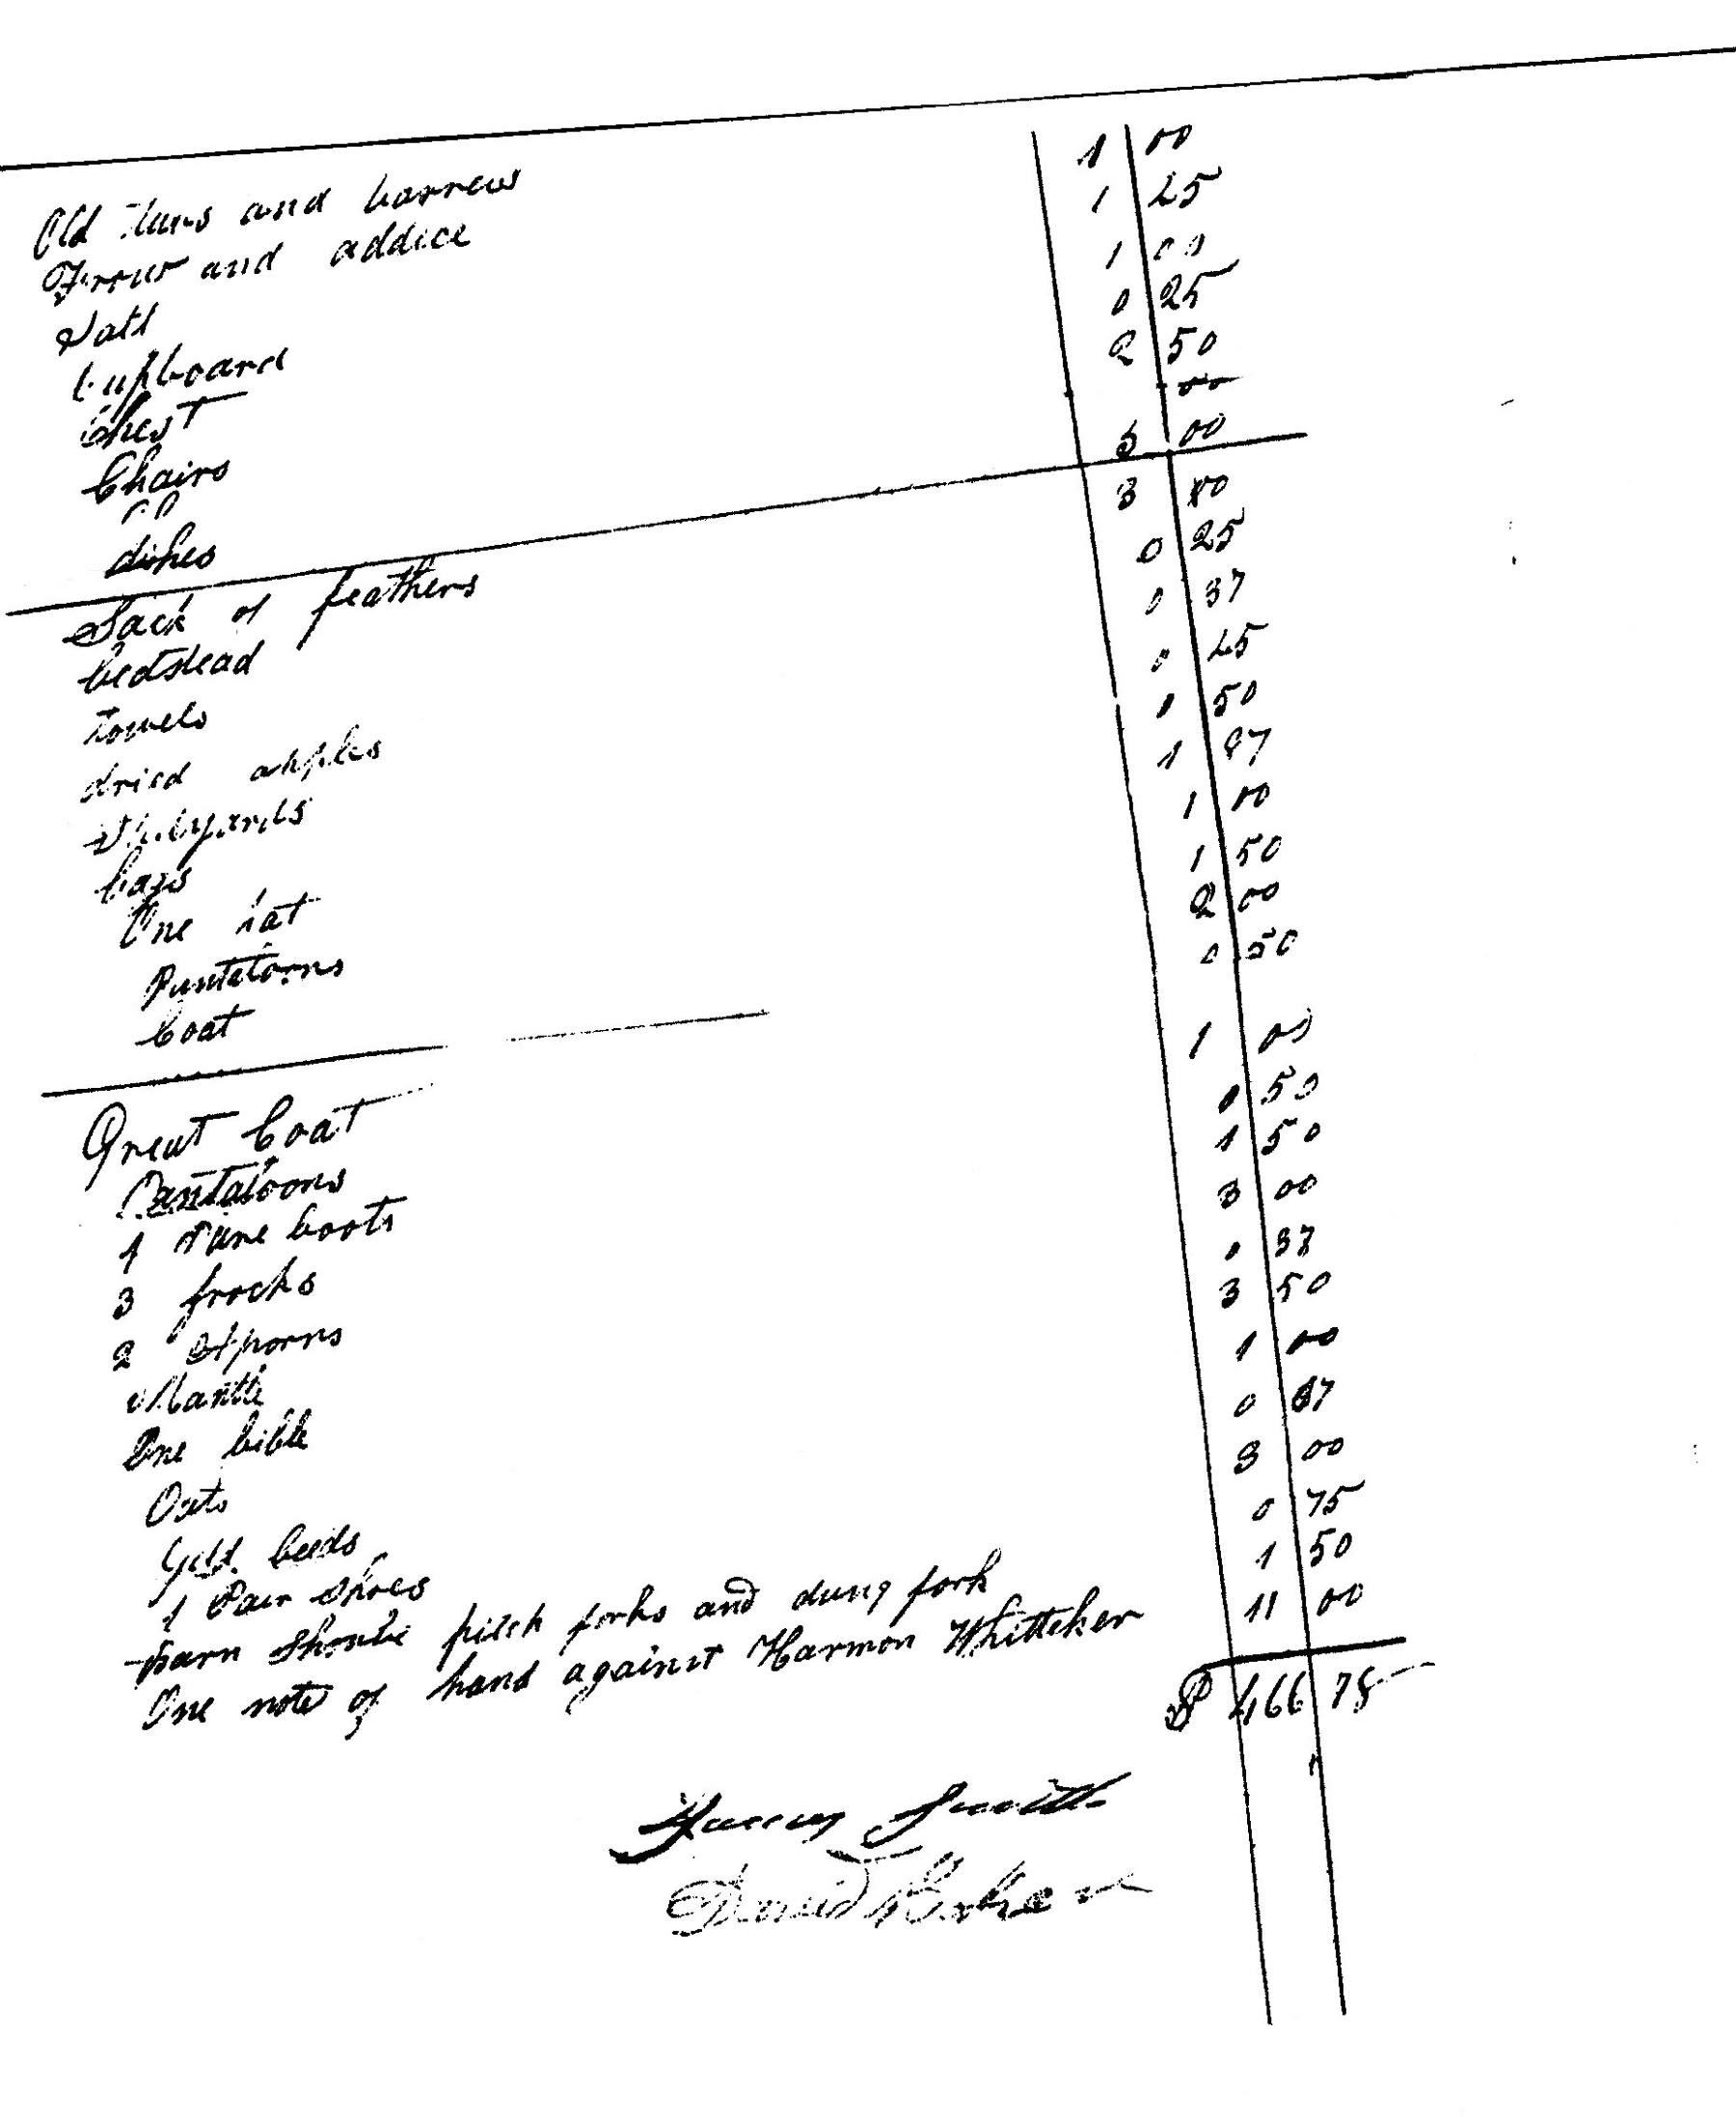 Old and harrows 1 00
Frow and addice 1 25
Vats 1 00
Cupboard 0 25
Chest 2 50
Chairs 00
5 00
dishes 3 80
Sack of feathers 0 25
bedstead 0 37
towels 0 25
dried apples 0 50
Stilyards 1 87
bags 1 00
One hat 1 50
Pantatoons 2 00
Coat 0 50
Great Coat 1 00
Pantatoons 0 50
1 Pare boots 1 50
3 frocks 3 00
2 Aporns 0 37
Mantle 3 50
One bible 1 00
Oats 0 87
Gold beeds 3 00
1 Pair Shoes 0 75
barn Shovle pitch forks and dung fork 1 50
One note of hand against Harmon Whitteker 11 00
$ 466 78
Smith
David Baker